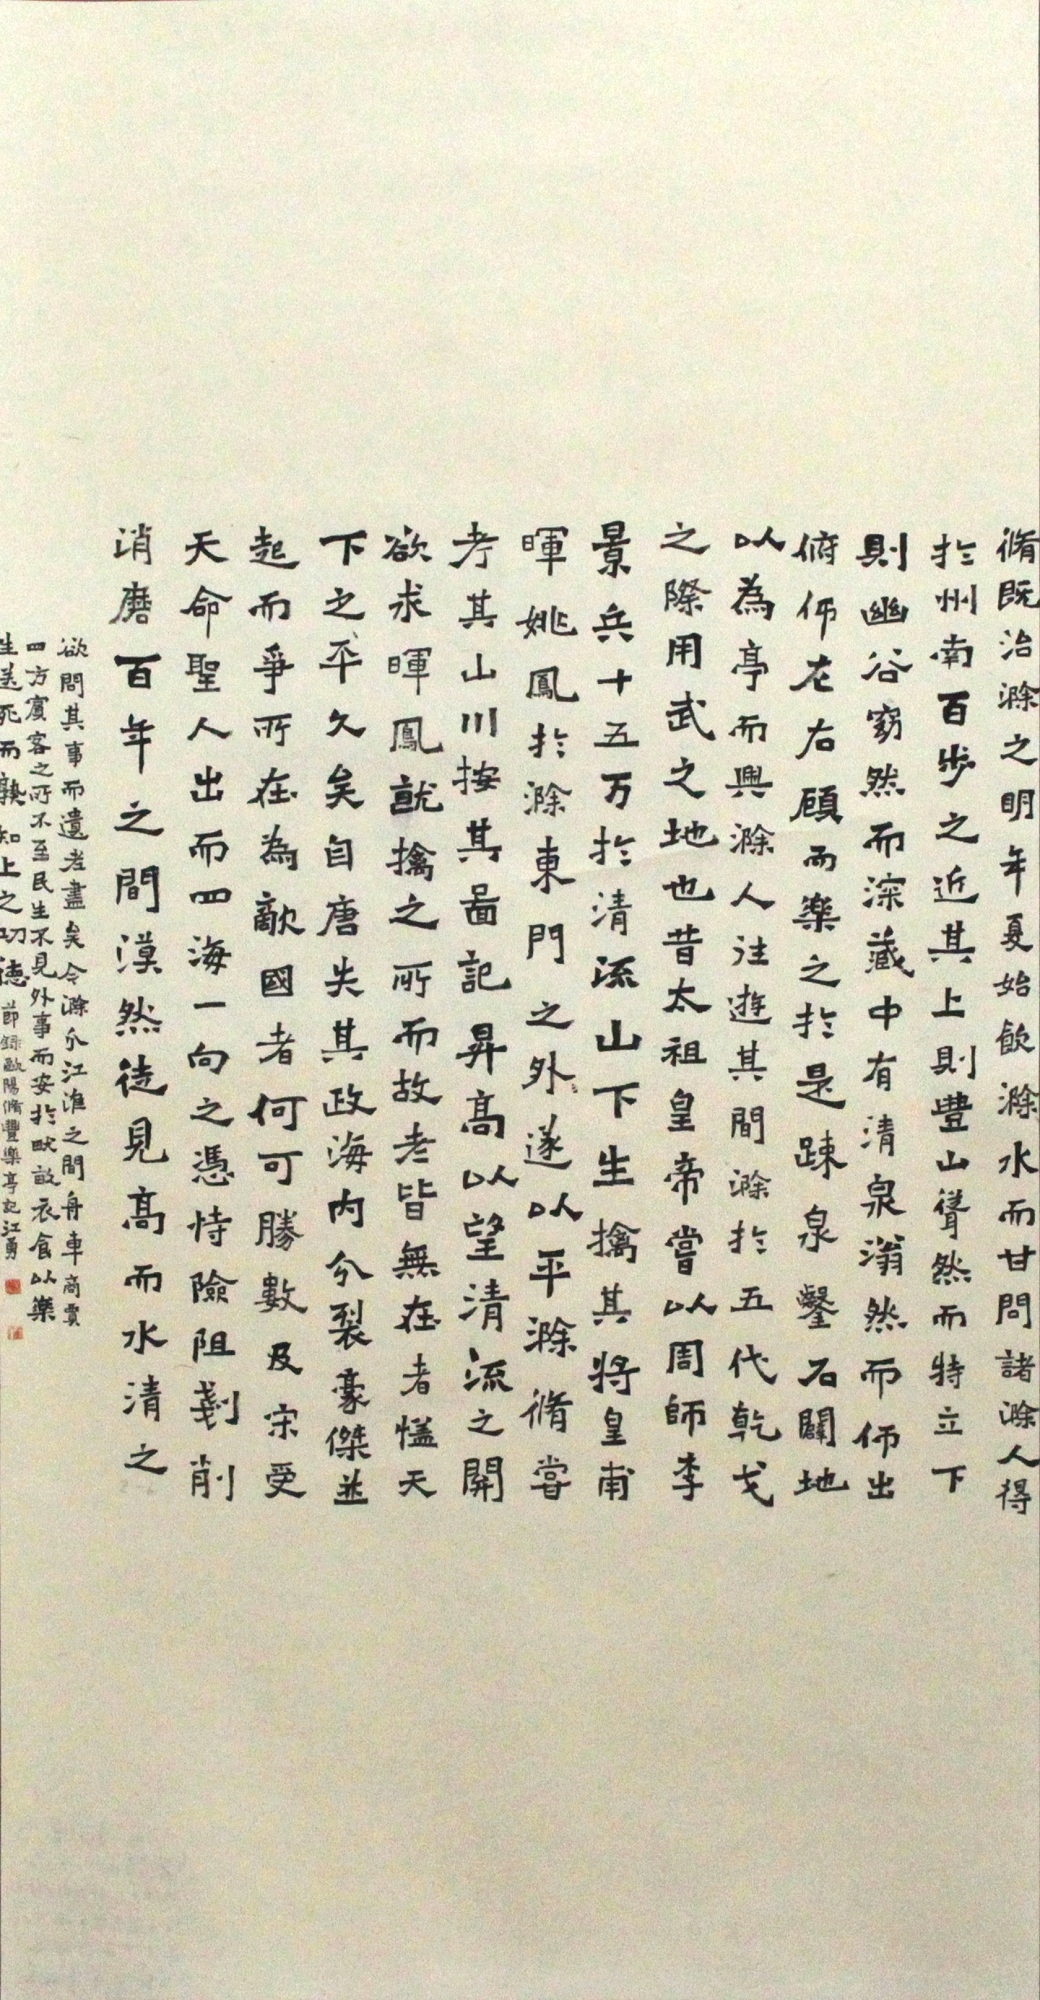 脩既治滁之明年夏始飲滁水而甘問諸滁人得
於州南百步之近其上則豐山聳然而特立下
則幽谷窈然而深藏中有清泉滃然而仰出
俯仰左右顧而樂之於是疎泉鑿石闢地
以為亭而與滁人往遊其間滁於五代乾戈
之際用武之地也昔太祖皇帝嘗以周師李
景兵十五万於清流山下生擒其將皇甫
暉姚鳳於滁東門之外遂以平滁脩嘗
考其山川按其啚記昇高以望清流之關
欲求暉鳳就擒之所而故老皆無在者蓋天
下之平久矣自唐失其政海内分裂豪傑並
起而爭所在為敵國者何可勝數及宋受
天命聖人出而四海一向之憑恃險阻剗削
消磨百年之間漠然徒見高而水清之
欲問其事而遺老盡矣今滁介江淮之間舟車商賈
四方賓客之所不至民生不見外事而安於畎畝衣食以樂
生送死而孰知上之功德 節錄歐陽脩豐樂亭記江勇